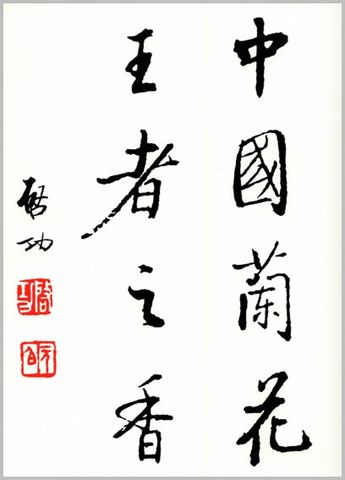 中國蘭花
王者之香
啓功